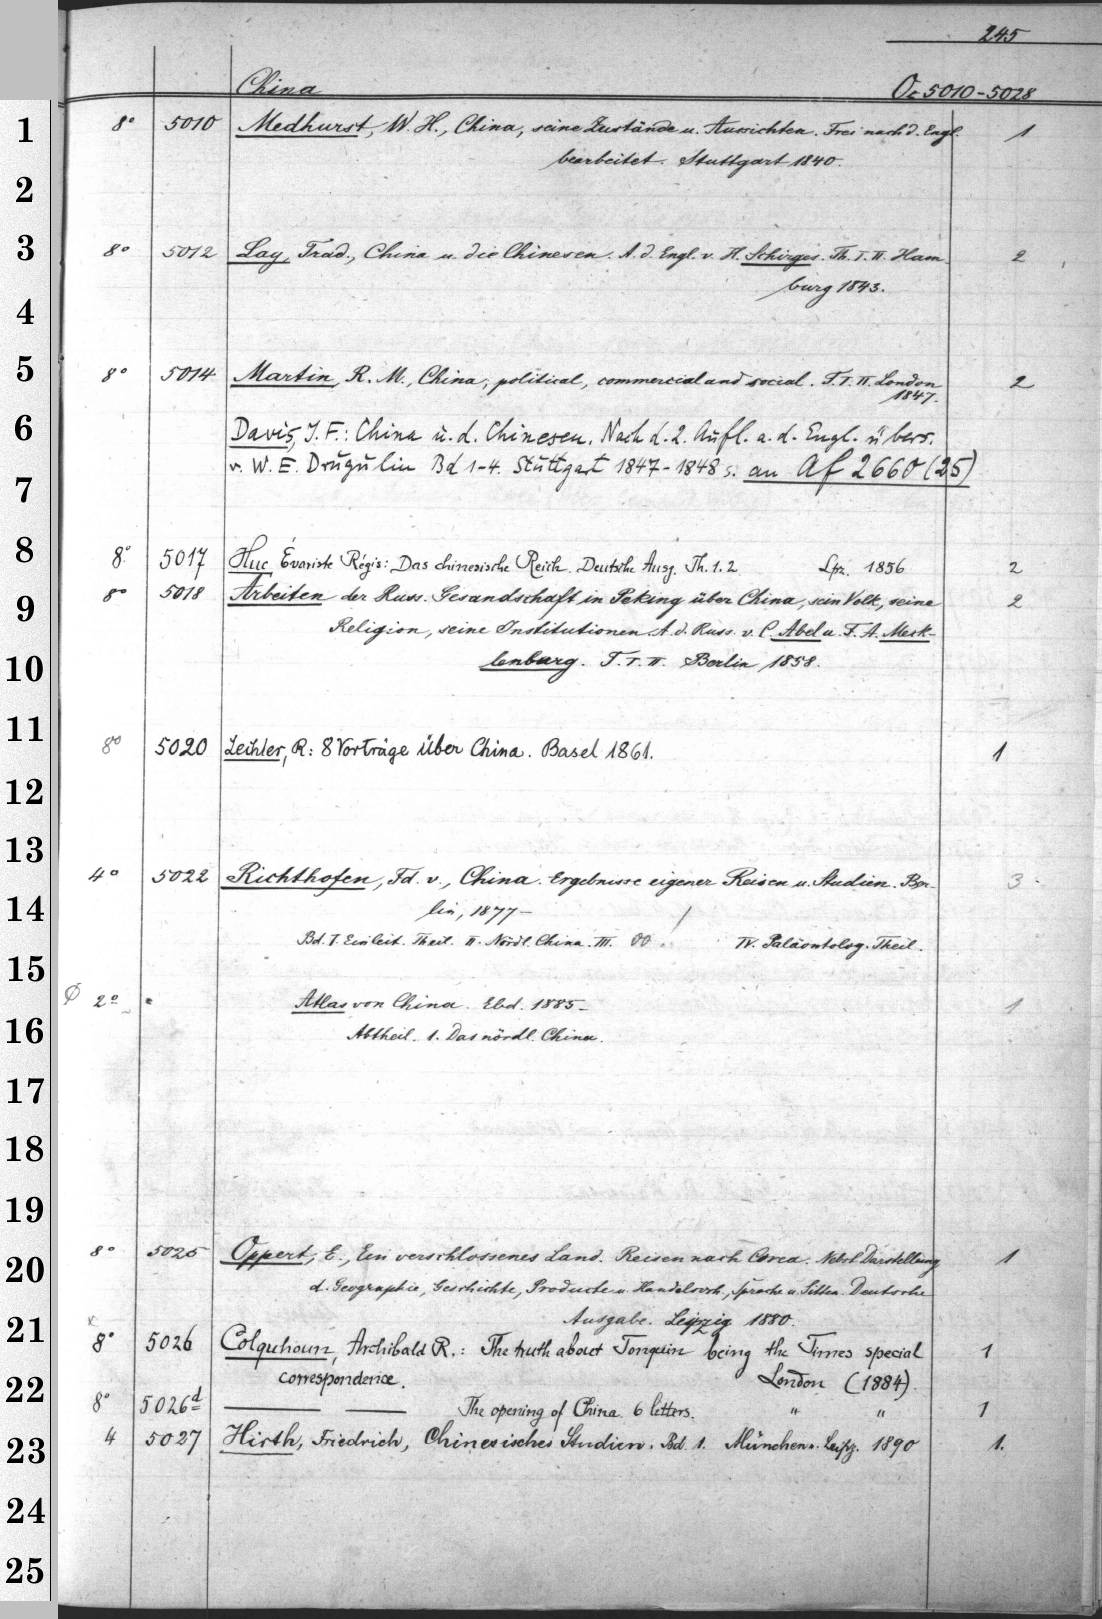 245
China Oc 5010-5028
1 8° 5010 Medhurst, W. H., China, seine Zustände u. Aussichten. Frei nach d. Engl. 1
2 bearbeitet. Stuttgart 1840.
3 8° 5012 Lay, Trad., China u. die Chinesen. A. d. Engl. v. H. Schirges. Th. I. II. Ham- 2
4 burg 1843.
5 8° 5014 Martin, R. M., China, political, commercial and social. T. I. II. London 2
1847.
6 Davis, J. F.: China u. d. Chinesen. Nach d. 2. Aufl. a. d. Engl. übers.
7 v. W. E. Drugulin Bd 1-4. Stuttgart 1847-1848 s. an Af 2660 (25)
8 8° 5017 Huc, Évariste Régis: Das chinesische Reich. Deutsche Ausg. Th. 1. 2 Lpz. 1856 2
9 8° 5018 Arbeiten der Russ. Gesandschaft in Peking über China, sein Volk, seine 2
Religion, seine Institutionen. A. d. Russ. v. C. Abel u. F. A. Meck-
10 lenburg. T. I. II. Berlin 1858.
11 8° 5020 Lechler, R: 8 Vorträge über China. Basel 1861. 1
12
13 4° 5022 Richthofen, Fd. v., China. Ergebnisse eigener Reisen u. Studien. Ber- 3
14 lin, 1877-
Bd. I. Einleit. Theil. II. Nördl. China. III. 00. IV. Paläontolog. Theil.
15 Ø 2° " Atlas von China. Ebd. 1885- 1
16 Abtheil. 1. Das nördl. China.
17
18
19
20 8° 5025 Oppert, E., Ein verschlossenes Land. Reisen nach Corea. Nebst Darstellung 1
d. Geographie, Geschichte, Producte u. Handelsvrh., Sprache u. Sitten. Deutsche
21 Ausgabe. Leipzig 1880.
x 8° 5026 Colquhoun, Archibald R.: The truth about Tonquin being the Times special 1
22 correspondence. London (1884).
8° 5026d — — The opening of China. 6 letters. " " 1
23 4 5027 Hirth, Friedrich, Chinesische Studien. Bd. 1. München u. Leipz. 1890 1.
24
25